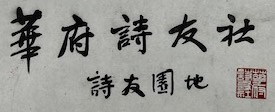 華府詩友社
詩友園地